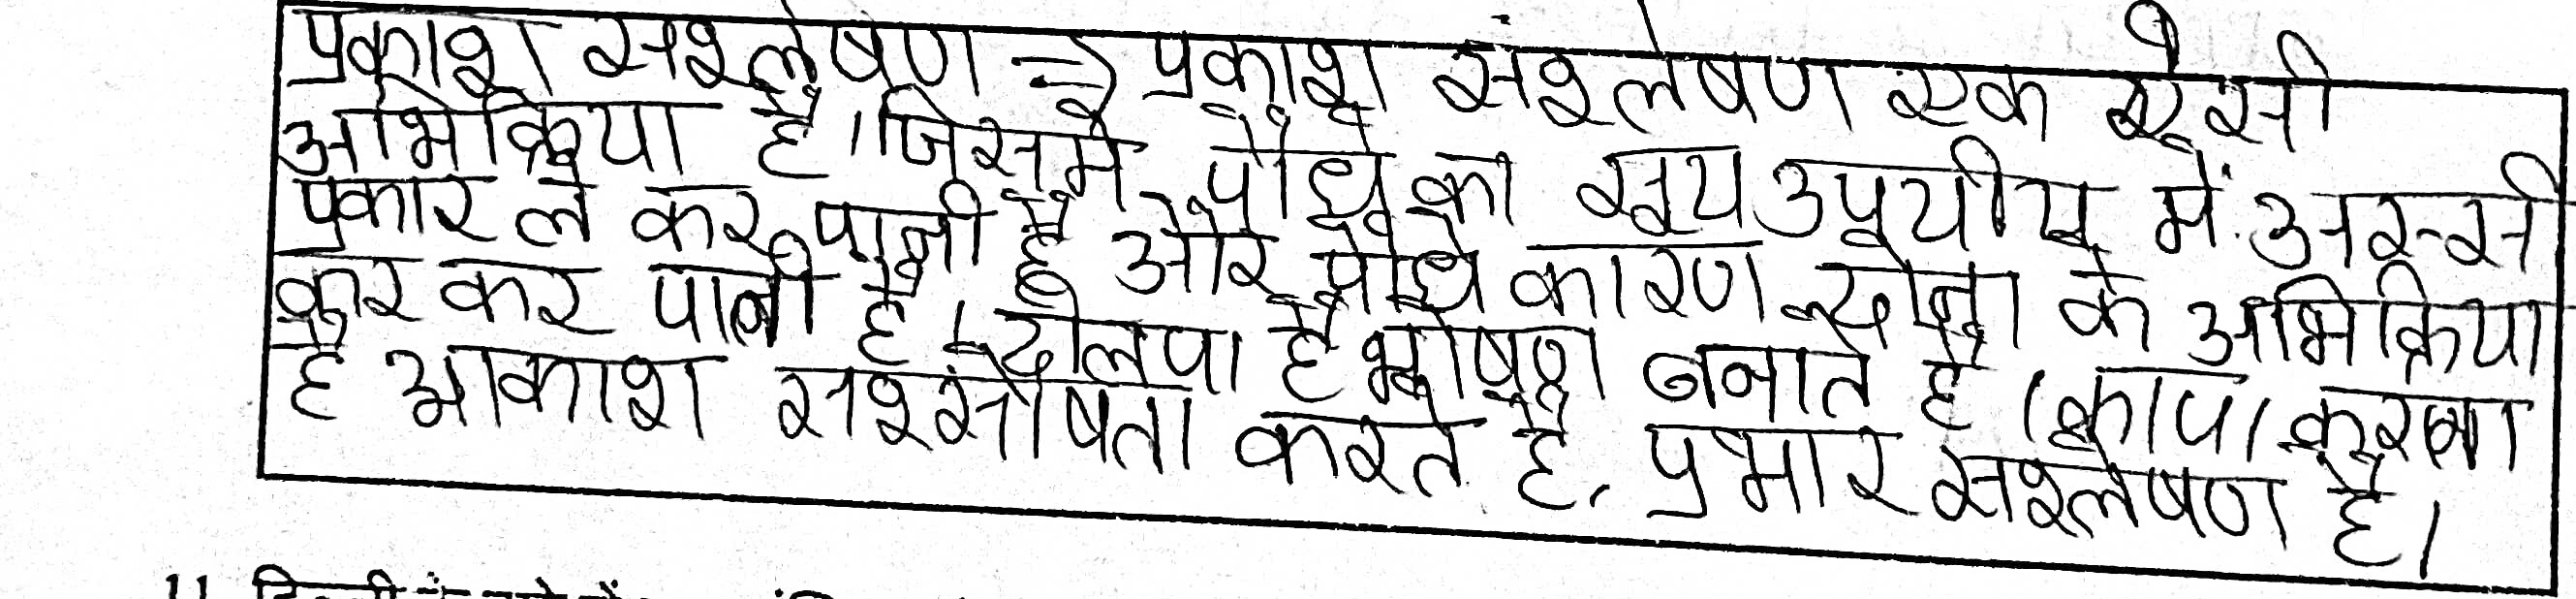 प्रकाश सश्लेषण => प्रकाश संश्लेषण एक ऐसी
अभिक्रिया है। जिसमे पौधे का सूय उपयीय में अस्सी
प्रकार ले कर पानी है और पौधे कारण के अभिक्रिया
कर कर पानी है। है बनाते है। करना
है आकाश सश्सोषता करते है, प्रभार सश्लेषण है।
11